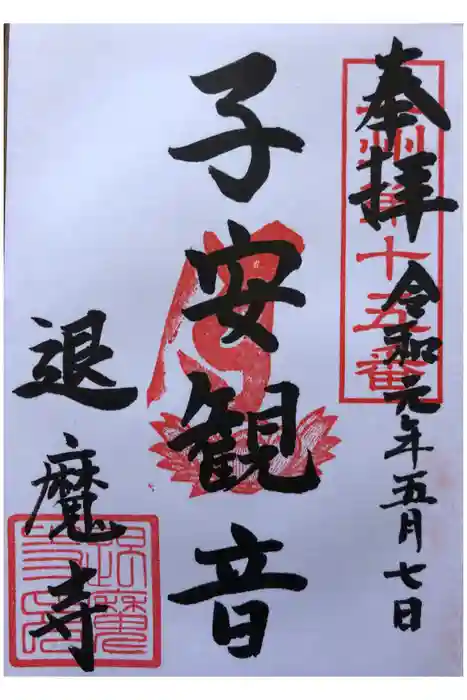 奉拝 令和元年五月七日
子安観音
退魔寺